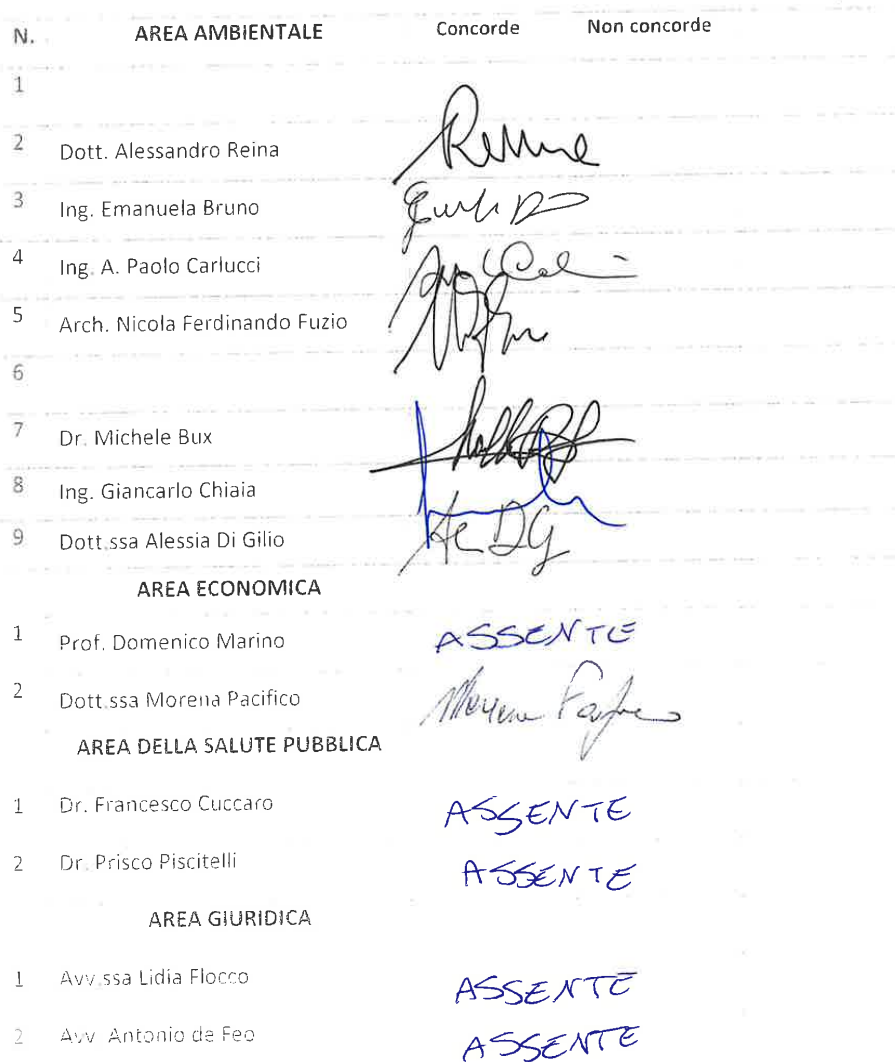 N. AREA AMBIENTALE Concorde Non concorde
1
2 Dott. Alessandro Reina
3 Ing. Emanuela Bruno
4 Ing. A. Paolo Carlucci
5 Arch. Nicola Ferdinando Fuzio
6
7 Dr. Michele Bux
8 Ing. Giancarlo Chiaia
9 Dott.ssa Alessia Di Gilio
AREA ECONOMICA
1 Prof. Domenico Marino ASSENTE
2 Dott.ssa Morena Pacifico
AREA DELLA SALUTE PUBBLICA
1 Dr. Francesco Cuccaro ASSENTE
2 Dr. Prisco Piscitelli ASSENTE
AREA GIURIDICA
1 Avv.ssa Lidia Flocco ASSENTE
2 Avv. Antonio de Feo ASSENTE